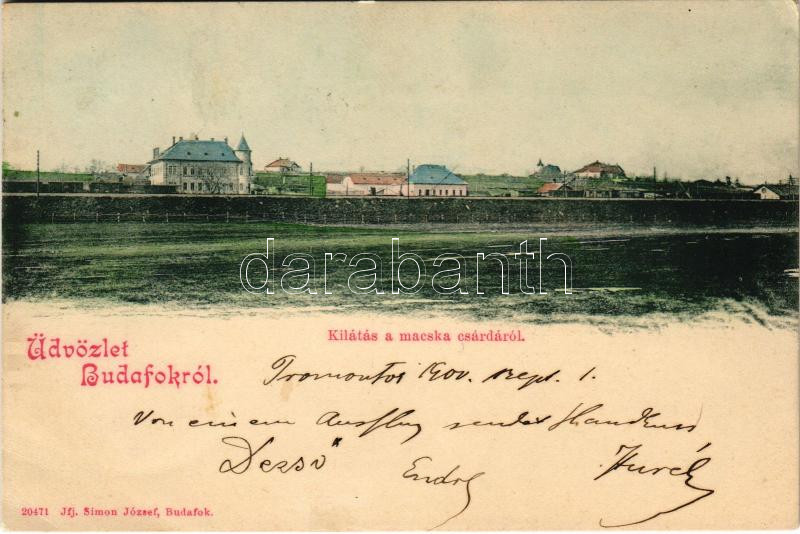 darabanth
Kilátás a macska csárdáról.
Üdvözlet
Budafokról.
Promontor 1900. Sept. 1.
Von einem Ausflug sendet Handkuss
Dezső Endre
20471 Jfj. Simon József, Budafok.